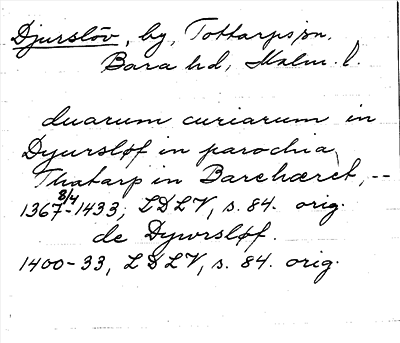 Djurslöv, by, Tottarps sn,
Bara hd, Malm. l.
duarum curiarum in
Dyursløf in parochia
Thatarp in Barehæret, --
1367 8/4 - 1433, LDLV, s. 84. orig.
de Dywrsløf.
1400-33, LDLV, s. 84. orig.